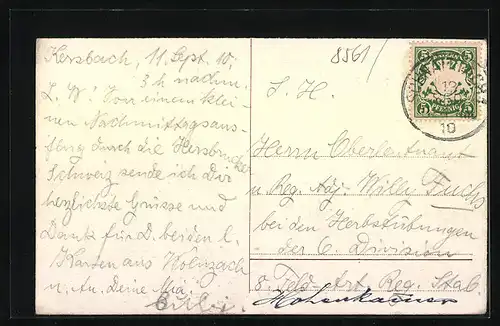 Kersbach, 11. Sept. 10.
3 h nachm.
L. W! Von einem klei-
nen Nachmittagsaus-
flug durch die Hersbrucker
Schweiz sende ich Dir
herzlichste Grüsse und
Dank für D. beiden l.
Karten aus Wolnzach
u. Au. Deine Mia.
8561/
S. H.
Herrn Oberleutnant
u. Reg. Adj. Willy Fuchs
bei den Herbstübungen
der 6. Division
8. Feld-Art. Reg. Stab.
Hohenkammer
BAYERN
5 5
PFENNIG
12
10